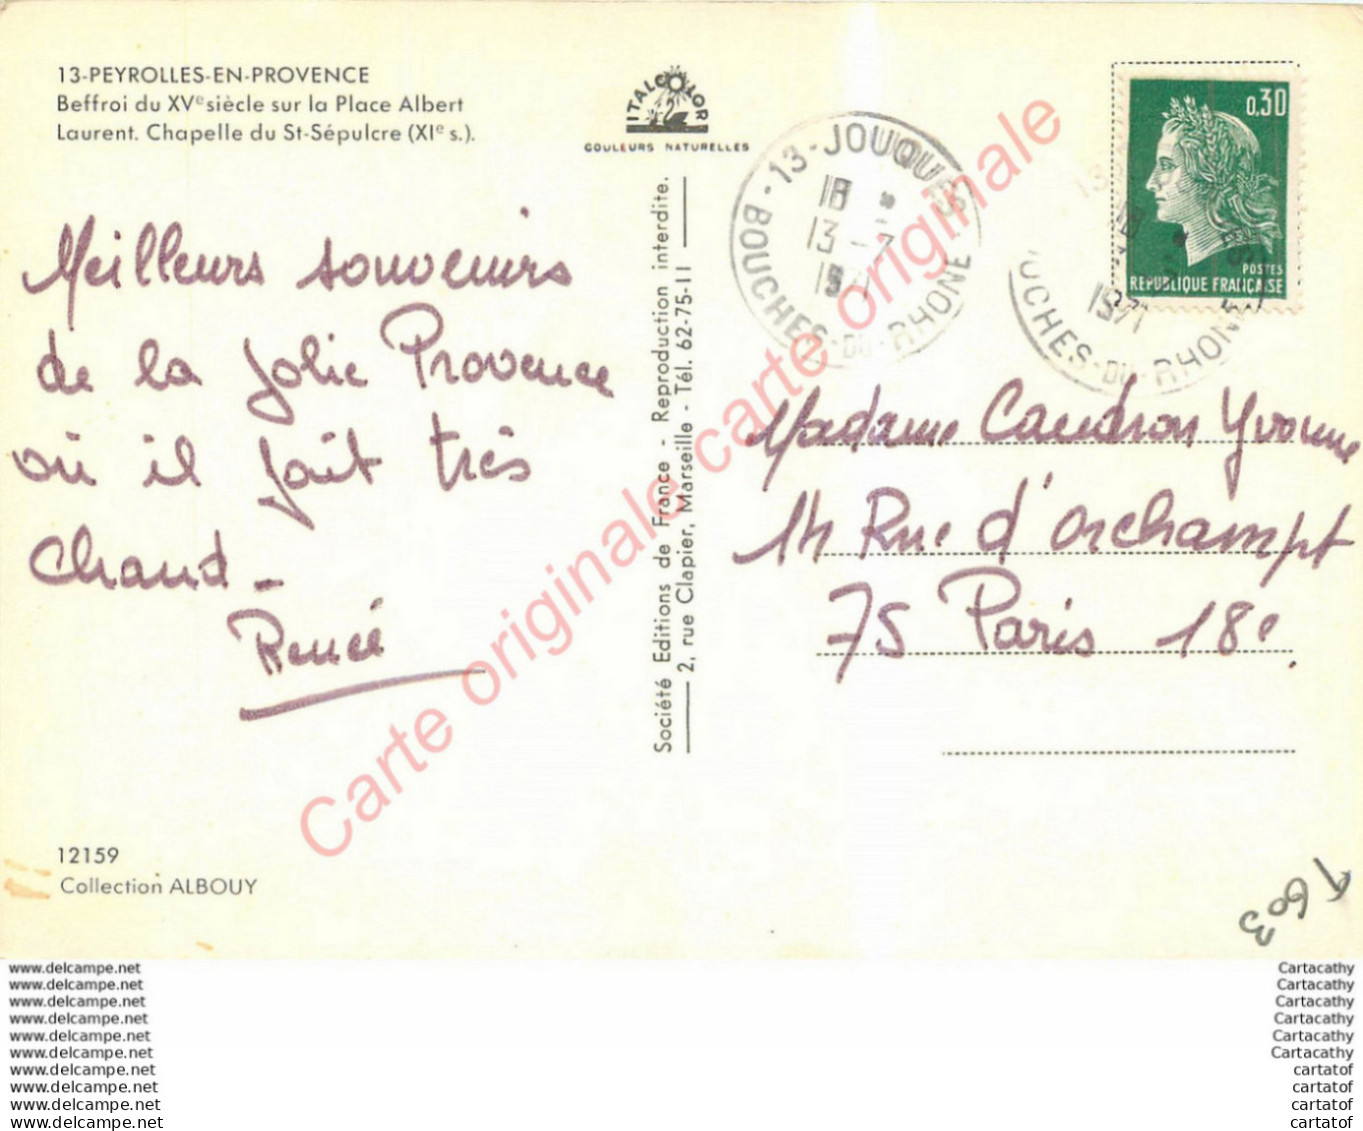 13-PEYROLLES-EN-PROVENCE
Beffroi du XVe siècle sur la Place Albert
Laurent. Chapelle du St-Sépulcre (XIe s.).
ITALCOLOR
COULEURS NATURELLES
Meilleurs souvenirs
de la jolie Provence
où il fait très
chaud -
Renée
12159
Collection ALBOUY
Société Editions de France - Reproduction interdite.
2, rue Clapier, Marseille - Tél. 62-75-11
13 - JOUQUES
BOUCHES-DU-RHONE
18
13 - 7
1971
0,30
POSTES
REPUBLIQUE FRANÇAISE
13
18
1971
OUCHES-DU-RHONE
Madame Caudron Yvonne
14 Rue d'Orchampt
75 Paris 18e
Carte originale carte originale
www.delcampe.net
www.delcampe.net
www.delcampe.net
www.delcampe.net
www.delcampe.net
www.delcampe.net
www.delcampe.net
www.delcampe.net
www.delcampe.net
www.delcampe.net
Cartacathy
Cartacathy
Cartacathy
Cartacathy
Cartacathy
Cartacathy
cartatof
cartatof
cartatof
cartatof